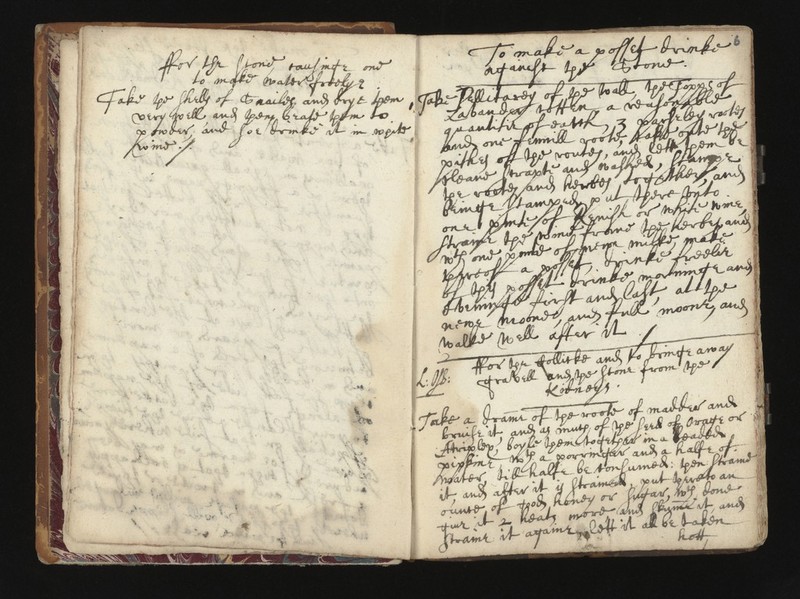 ffor the stone causinge one
to make water freelye
Take the shells of Snailes and drye them
very well and then beate them to
powder, and soe drinke it in white
wine
6
To make a posset drinke
against the Stone.
Take Pellitarey of the wall, the topps of
Lavander Cotten a reasonable
quantity of each, 3 parsley rootes
and one fennill roote, take oute the
pithes of the rootes, and lett them be
cleane scrapte and washed, stampe
the rootes and herbes together, and
beinge stamped, put there unto
one pinte of Renish or white wine
straine the wine from the herbes, and
wth one pinte of newe milke, make
thereof a posset, drinke freelie
of this posset drinke morninge and
eveninge first and last, at the
newe moone, and full moone, and
walke well after it
L: Ash:
ffor the Collicke and to bringe away
gravell and the stone from the
Kidneys.
Take a drame of the roote of madder and
bruise it, and as much of the seed of orage or
Atriplex, boyle them together in a leaded
pipkine wth a porringer and a halfe of
water, till halfe be consumed: then straine
it, and after it is strained, put thereto an
ounce of good honey or sugar, wch done
give it 2 heats more and skime it, and
straine it againe, lett it be taken
hott